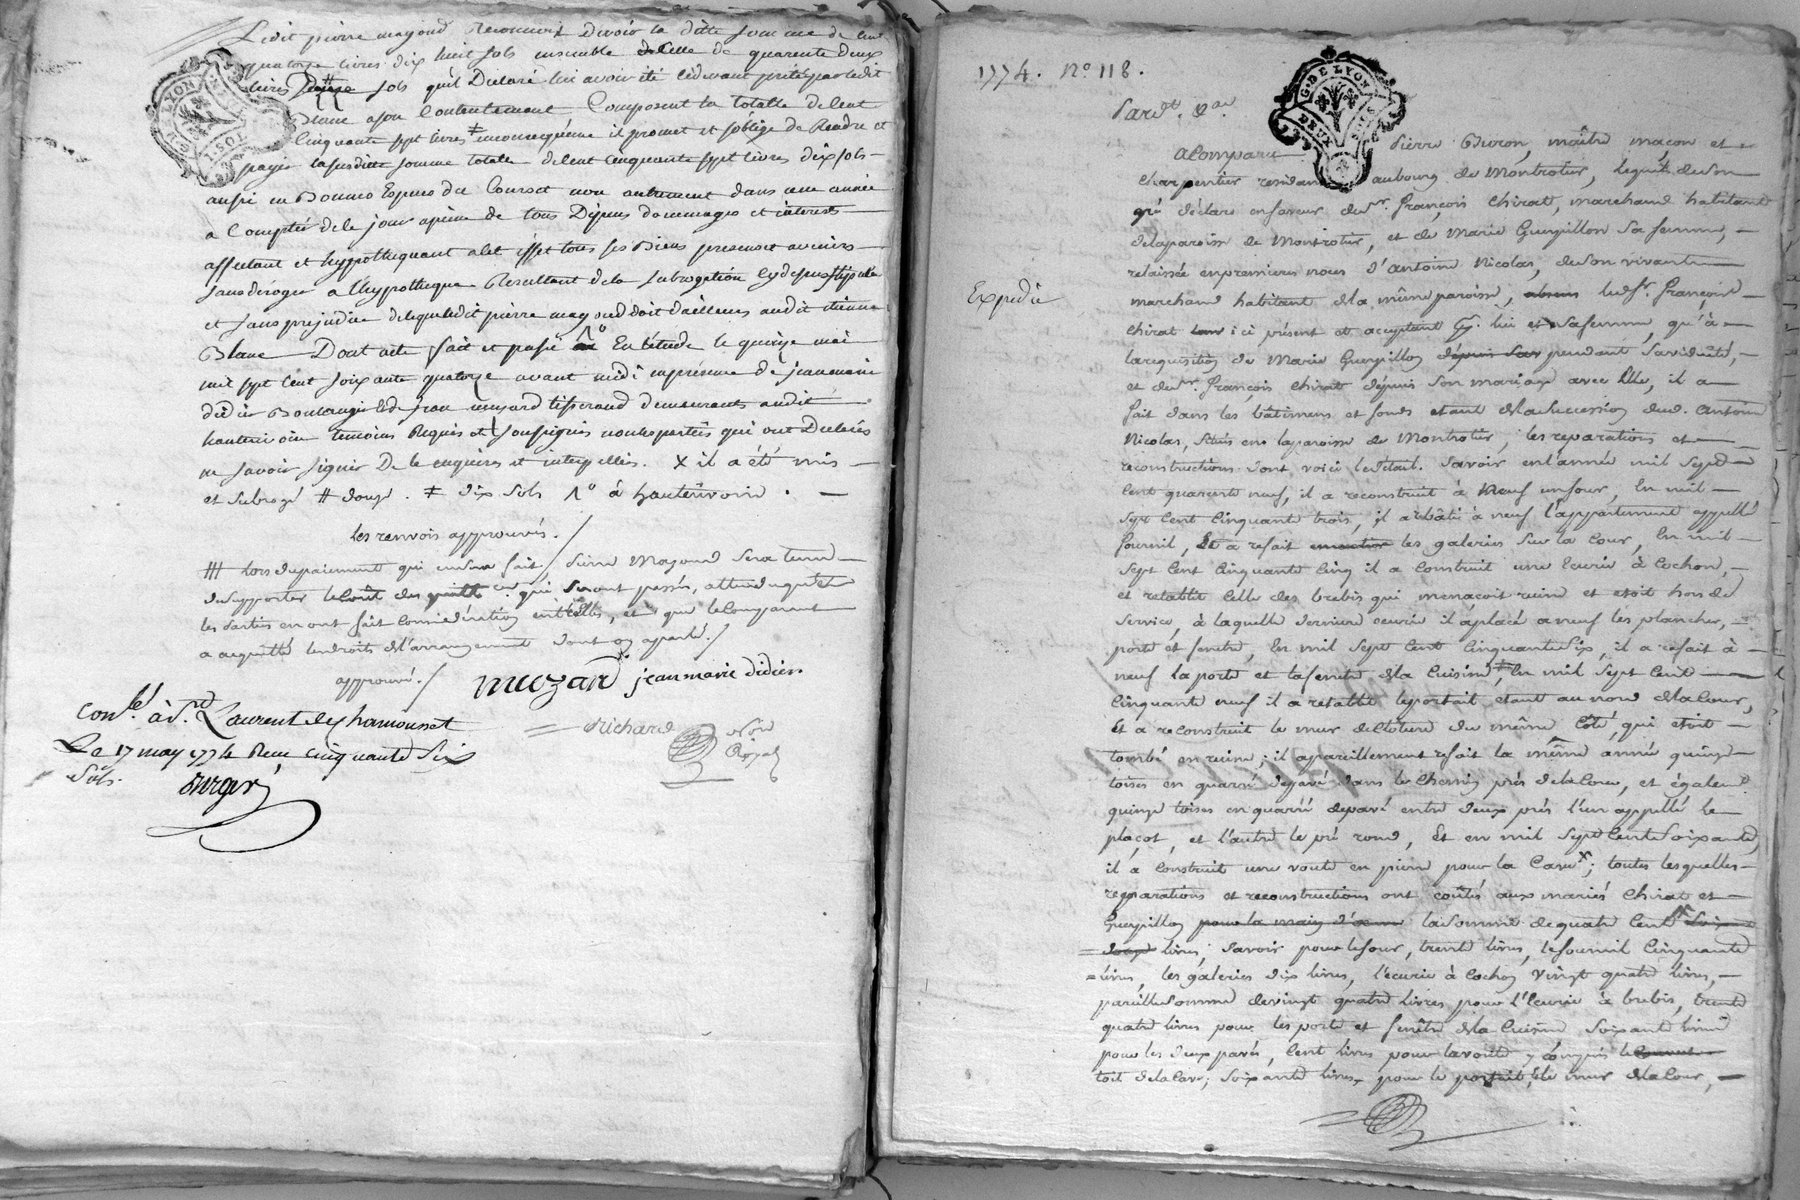 Ledit pierre mazond Reconnoit Devoir la ditte somme de cent
quatorze livres dix huit sols ensemble celle de quarente deux
livres sols qu'il Declare lui avoir été cidevant prêté par ledit
Blanc a son Contentement Composent la totalle de Cent
Cinquante sept livres ǂ inconsequence il promet et s'oblige de Rendre et
payer la susditte somme totalle de Cent cinquante sept livres dix sols
aussi en Bonnes Especes de Cours et non autrement dans une année
a Comptée de ce jour a peine de tous Dépens dommages et interets
affectant et hypothequant a cet effet tous ses Biens presens et avenirs
sans déroger a l'hypotheque Resultant de la subrogation cy dessus stipulée
et sans prejudice de ce que ledit pierre mazond doit d'ailleurs audit etienne
Blanc Dont acte fait et passé 1° En l'étude le quinze mai
mil sept cent soixante quatorze avant midi en présence de jean marie
didier Boulanger et de jean muzard tisserand demeurants audit
hauterivoire temoins Requis et soussignés non les parties qui ont Déclarés
ne savoir signer De ce enquises et interpellées. x il a été mis
et subrogé # douze. ǂ dix sols 1° à hauterivoire.
les renvois approuvés./
### hors de paiement qui en sera fait / pierre Mazond sera tenu
de supporter le coût des qui seront passés, attendu que
les parties en ont fait considération entr'elles, et que le comparant
a acquitté les droits de l'arrangement dont on a parlé./
approuvé./
muzard jean marie didier
Richard Nore Royal
Con.lé à St. Laurent de Chamousset
Le 17 may 1774 Reçu cinquante six
sols.
1774. N° 118.
Pard.t
G. DE LYON
DEUX SOLS
a Comparu Pierre Buron, maître maçon et
charpentier residant au bourg de Montrotier, lequel de son
gré déclare en faveur de sr. françois Chirat, marchand habitant
de la paroisse de Montrotier, et de Marie Guerpillon sa femme,
relaissée en premieres noces d'antoine Nicolas, de son vivant
Expedié
marchand habitant de la même paroisse, ledsr. françois
Chirat ici présent et acceptant pr. lui et sa femme, qu'à
la requisition de Marie Guerpillon pendant sa viduité,
et dusr. françois Chirat depuis son mariage avec Elle, il a
fait dans les bâtimens et fonds etant de la succession dud. antoine
Nicolas, situés en la paroisse de Montrotier, les reparations et
reconstructions dont voici le détail. savoir en l'année mil sept
cent quarante neuf, il a reconstruit à neuf un four, En mil
sept cent cinquante trois, il a rebâti à neuf l'appartement appellé
fournil, Et a refait les galeries sur la cour, En mil
sept cent cinquante cinq il a construit une Ecurie à cochon,
et retablit celle des brebis qui menacoit ruine et etoit hors de
service, à laquelle derniere ecurie il a placé a neuf les plancher,
porte et fenetre, En mil sept cent cinquante six, il a refait à
neuf la porte et la fenetre de la cuisine, En mil sept cent
cinquante neuf il a retablit le portail etant au nord de la Cour,
Et a reconstruit le mur de cloture du même côté, qui etoit
tombé en ruine; il a pareillement refait la même année quinze
toises en quarré de pavé dans le chemin près de la cour, et également
quinze toises en quarré de pavé entre deux prés l'un appellé le
plaçot, et l'autre le pré rond, Et en mil sept cent soixante,
il a construit une voute en pierre pour la Cave x; toutes lesquelles
reparations et reconstructions ont coûtés aux mariés Chirat et
Guerpillon pour la main d'œuvre la somme de quatre cent
livres; savoir pour le four, trente livres, le fournil cinquante
livres, les galeries dix livres, l'ecurie à cochon vingt quatre livres,
pareille somme de vingt quatre livres pour l'Ecurie à brebis, trente
quatre livres pour les porte et fenêtre de la cuisine soixante livres
pour les deux pavés, cent livres pour la voute y compris le
toit de la Cave; soixante livres pour le portail, et le mur de la Cour,